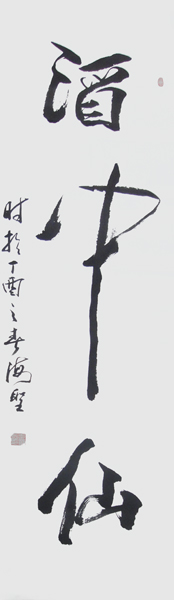 酒中仙
时於丁酉之春海